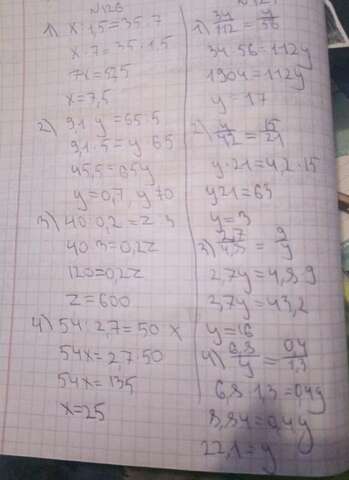 N126
1) x : 1,5 = 35 : 7
x · 7 = 35 · 1,5
7x = 52,5
x = 7,5
2) 9,1 : y = 65 : 5
9,1 · 5 = y · 65
45,5 = 65y
y = 0,7
3) 40 : 0,2 = z : 3
40 · 3 = 0,2z
120 = 0,2z
z = 600
4) 54 : 2,7 = 50 : x
54x = 2,7 · 50
54x = 135
x = 25
1) 34/112 = y/56
34 · 56 = 112y
1904 = 112y
y = 17
2) y/4,2 = 15/21
y · 21 = 4,2 · 15
y21 = 63
y = 3
3) 2,7/4,8 = 9/y
2,7y = 4,8 · 9
2,7y = 43,2
y = 16
4) 6,8/y = 0,4/1,3
6,8 · 1,3 = 0,4y
8,84 = 0,4y
22,1 = y